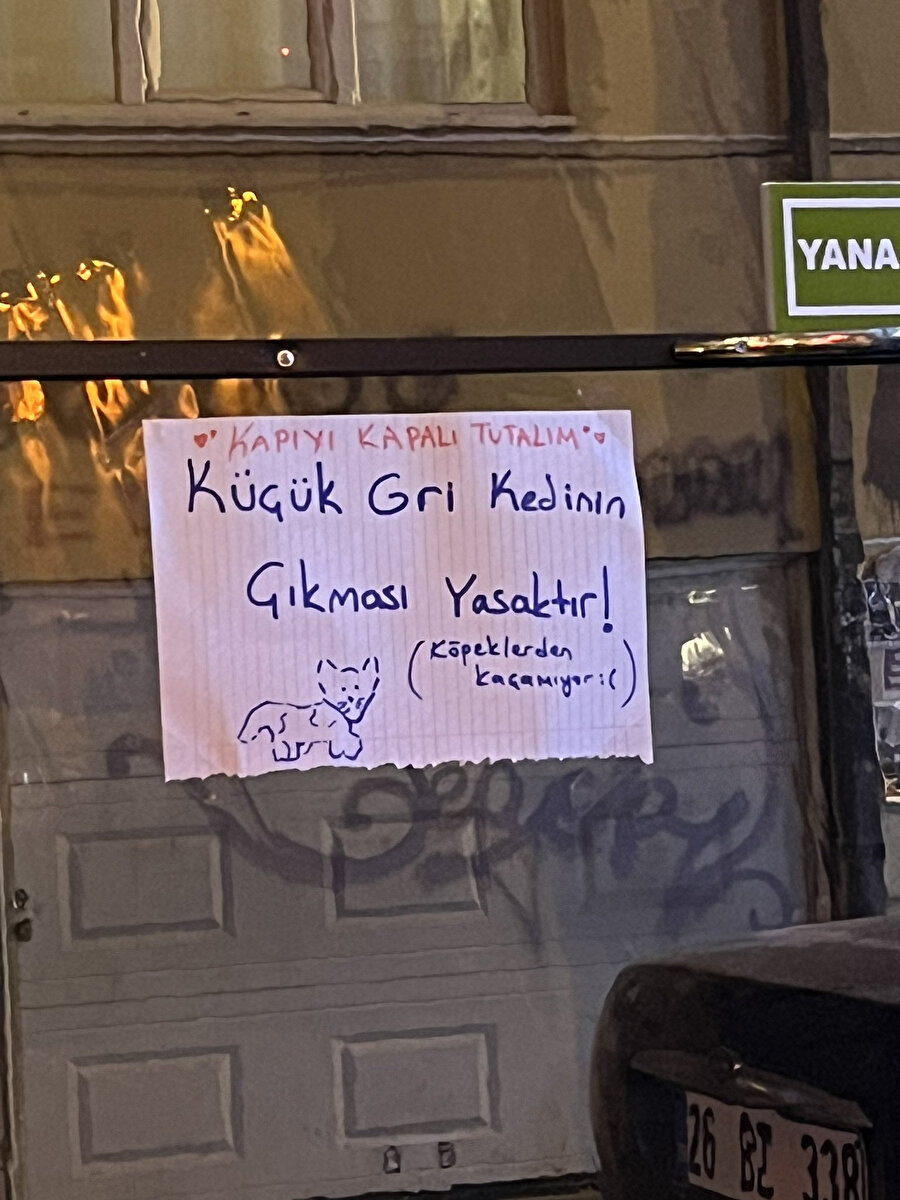 YANA
KAPIYI KAPALI TUTALIM
Küçük Gri Kedinin
Çıkması Yasaktır!
(Köpeklerden
kaçamıyor :()
26 BZ 338